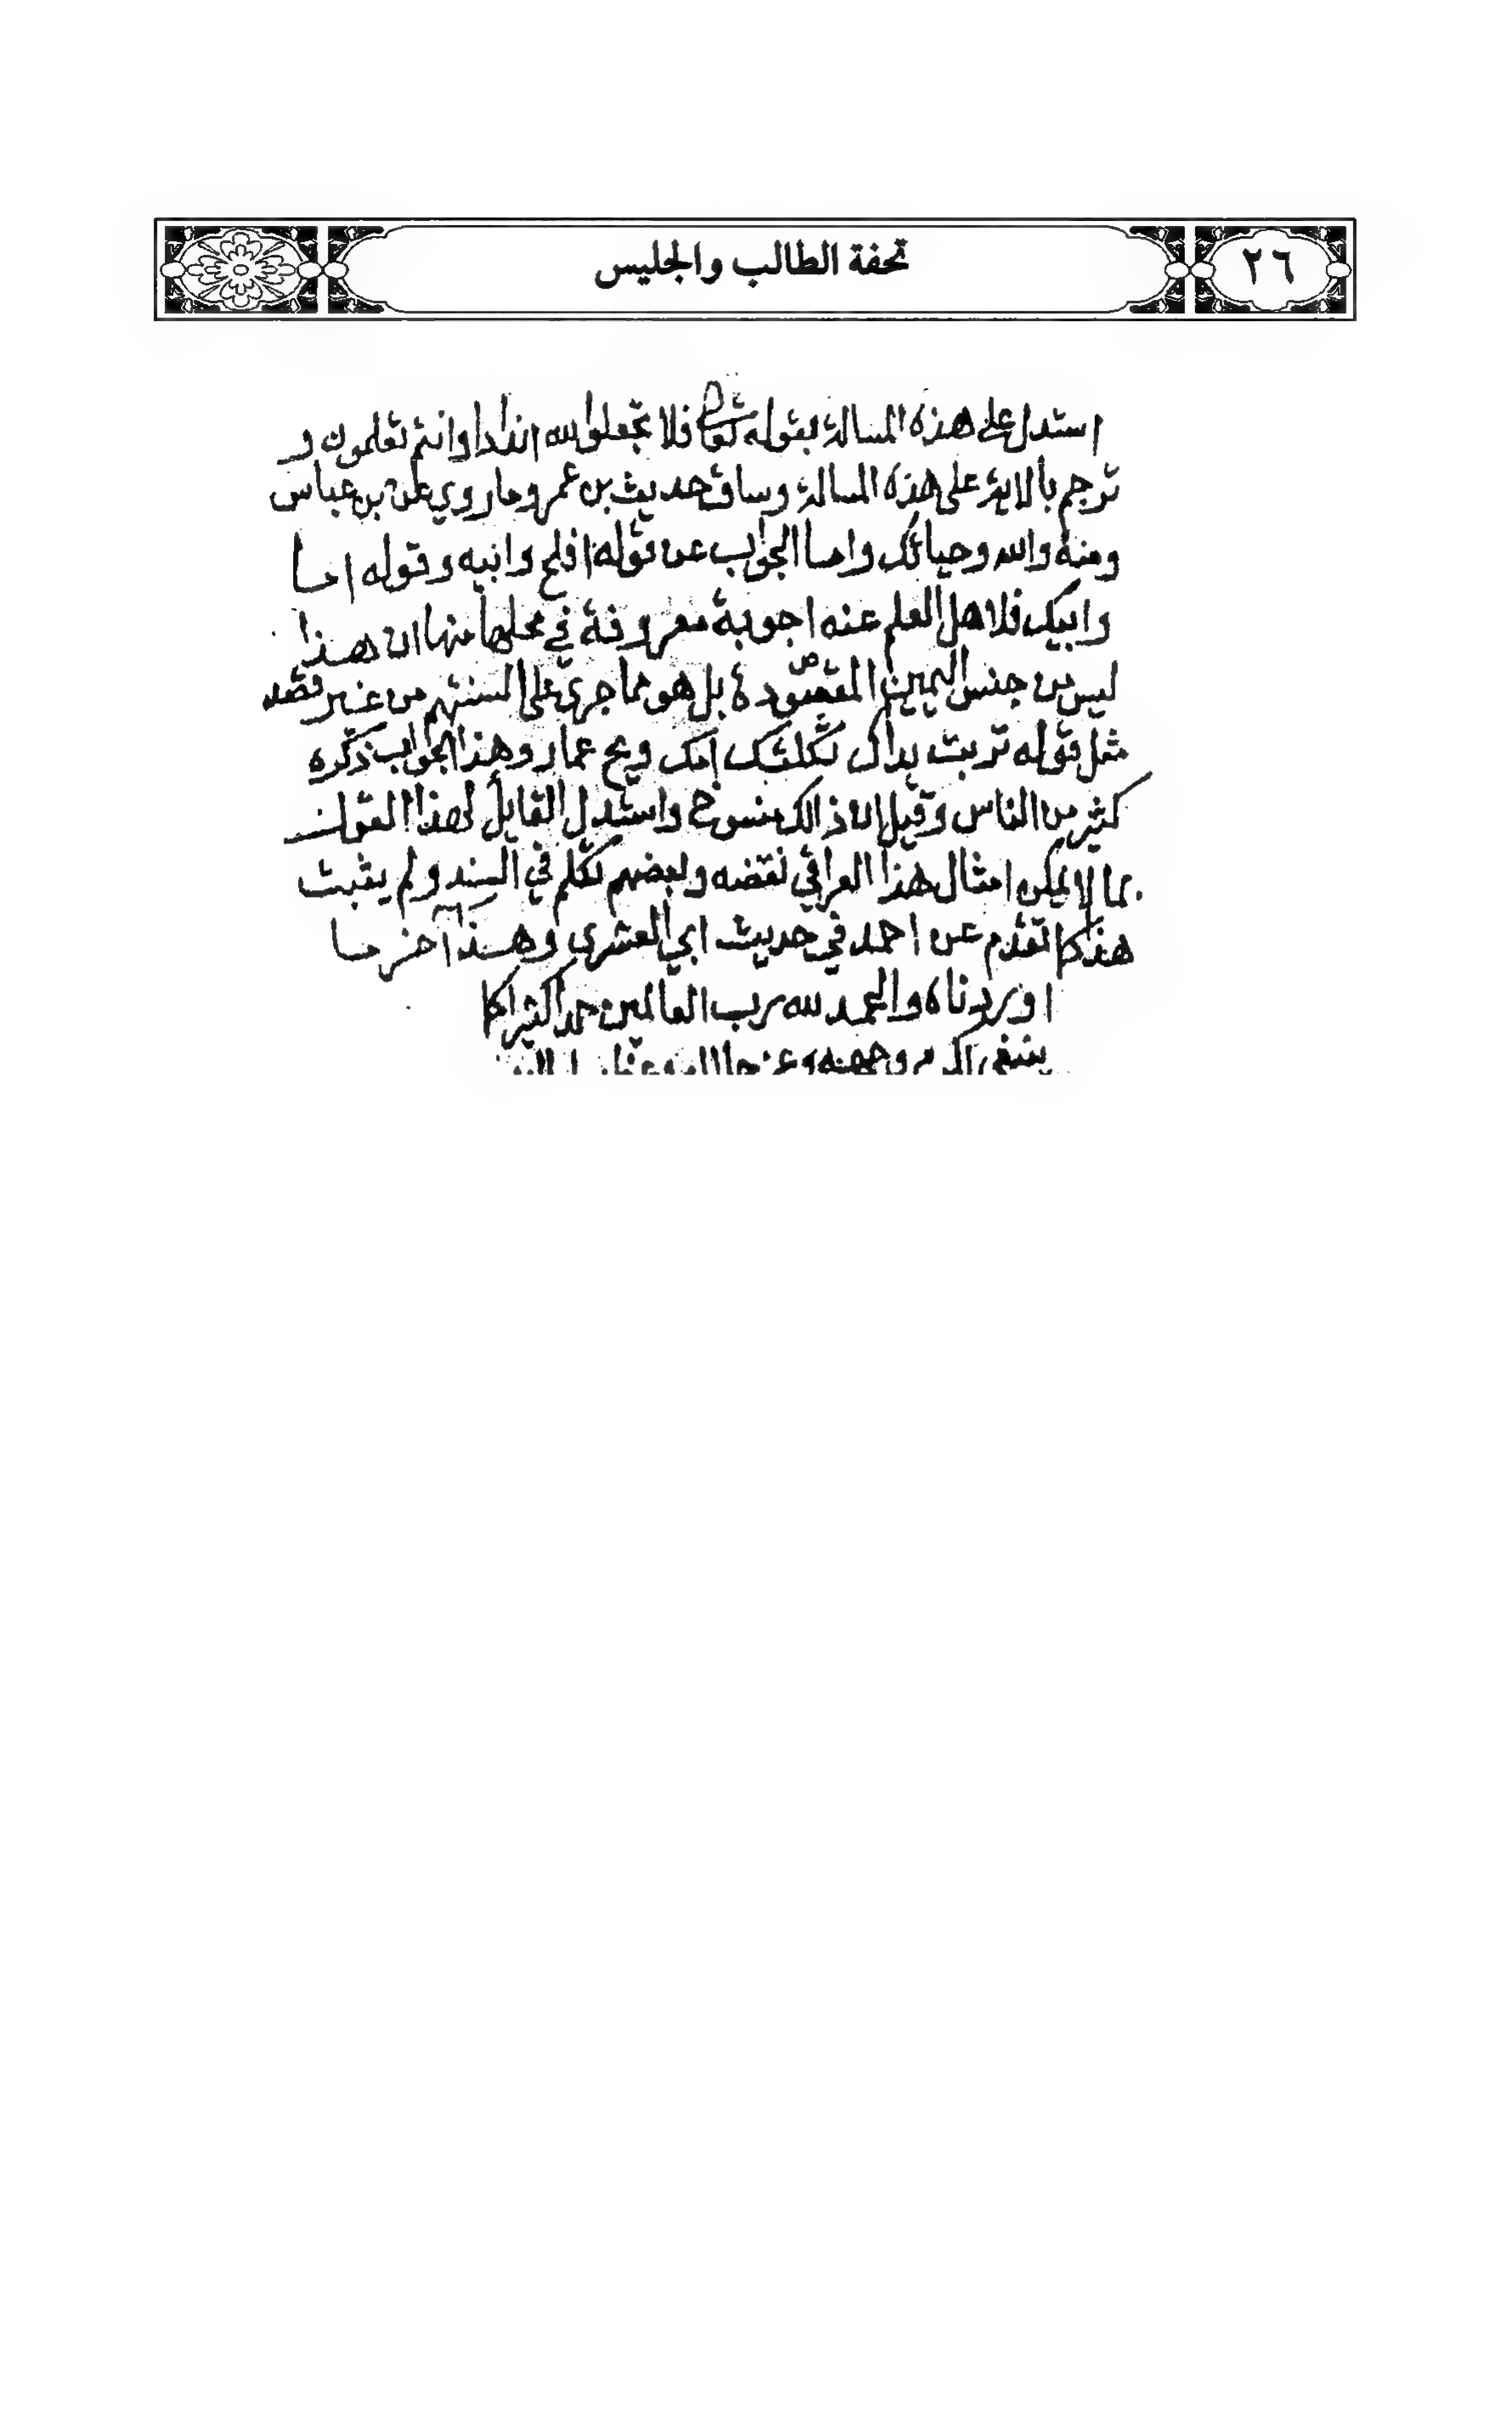 ٢٦
تحفة الطالب والجليس
استدل على هذه المسالة بقوله تعالى فلا تجعلوا لله اندادا وانتم تعلمون و
ترجم بالاية على هذه المسالة وساق حديث بن عمر وما روي عن بن عباس
ومنه والله وحياتك واما الجواب عن قوله افلح وابيه وقوله اما
وابيك فلاهل العلم عنه اجوبة معروفة في محلها منها ان هذا
ليس من جنس اليمين المقصودة بل هو مما جرى على السنتهم من غير قصد
مثل قوله تربت يداك ثكلتك امك ويح عمار وهذا الجواب ذكره
كثير من الناس وقيل ان ذالك منسوخ واستدل القايل لهذا القول
بما لا يمكن امثال هذا العراقي نقضه وبعضهم تكلم في السند ولم يثبت
هذا كما تقدم عن احمد في حديث ابي العشرى وهذا آخر ما
اوردناه والحمد لله رب العالمين حمدا كثيرا كما
ينبغي لكرم وجهه وعز جلاله